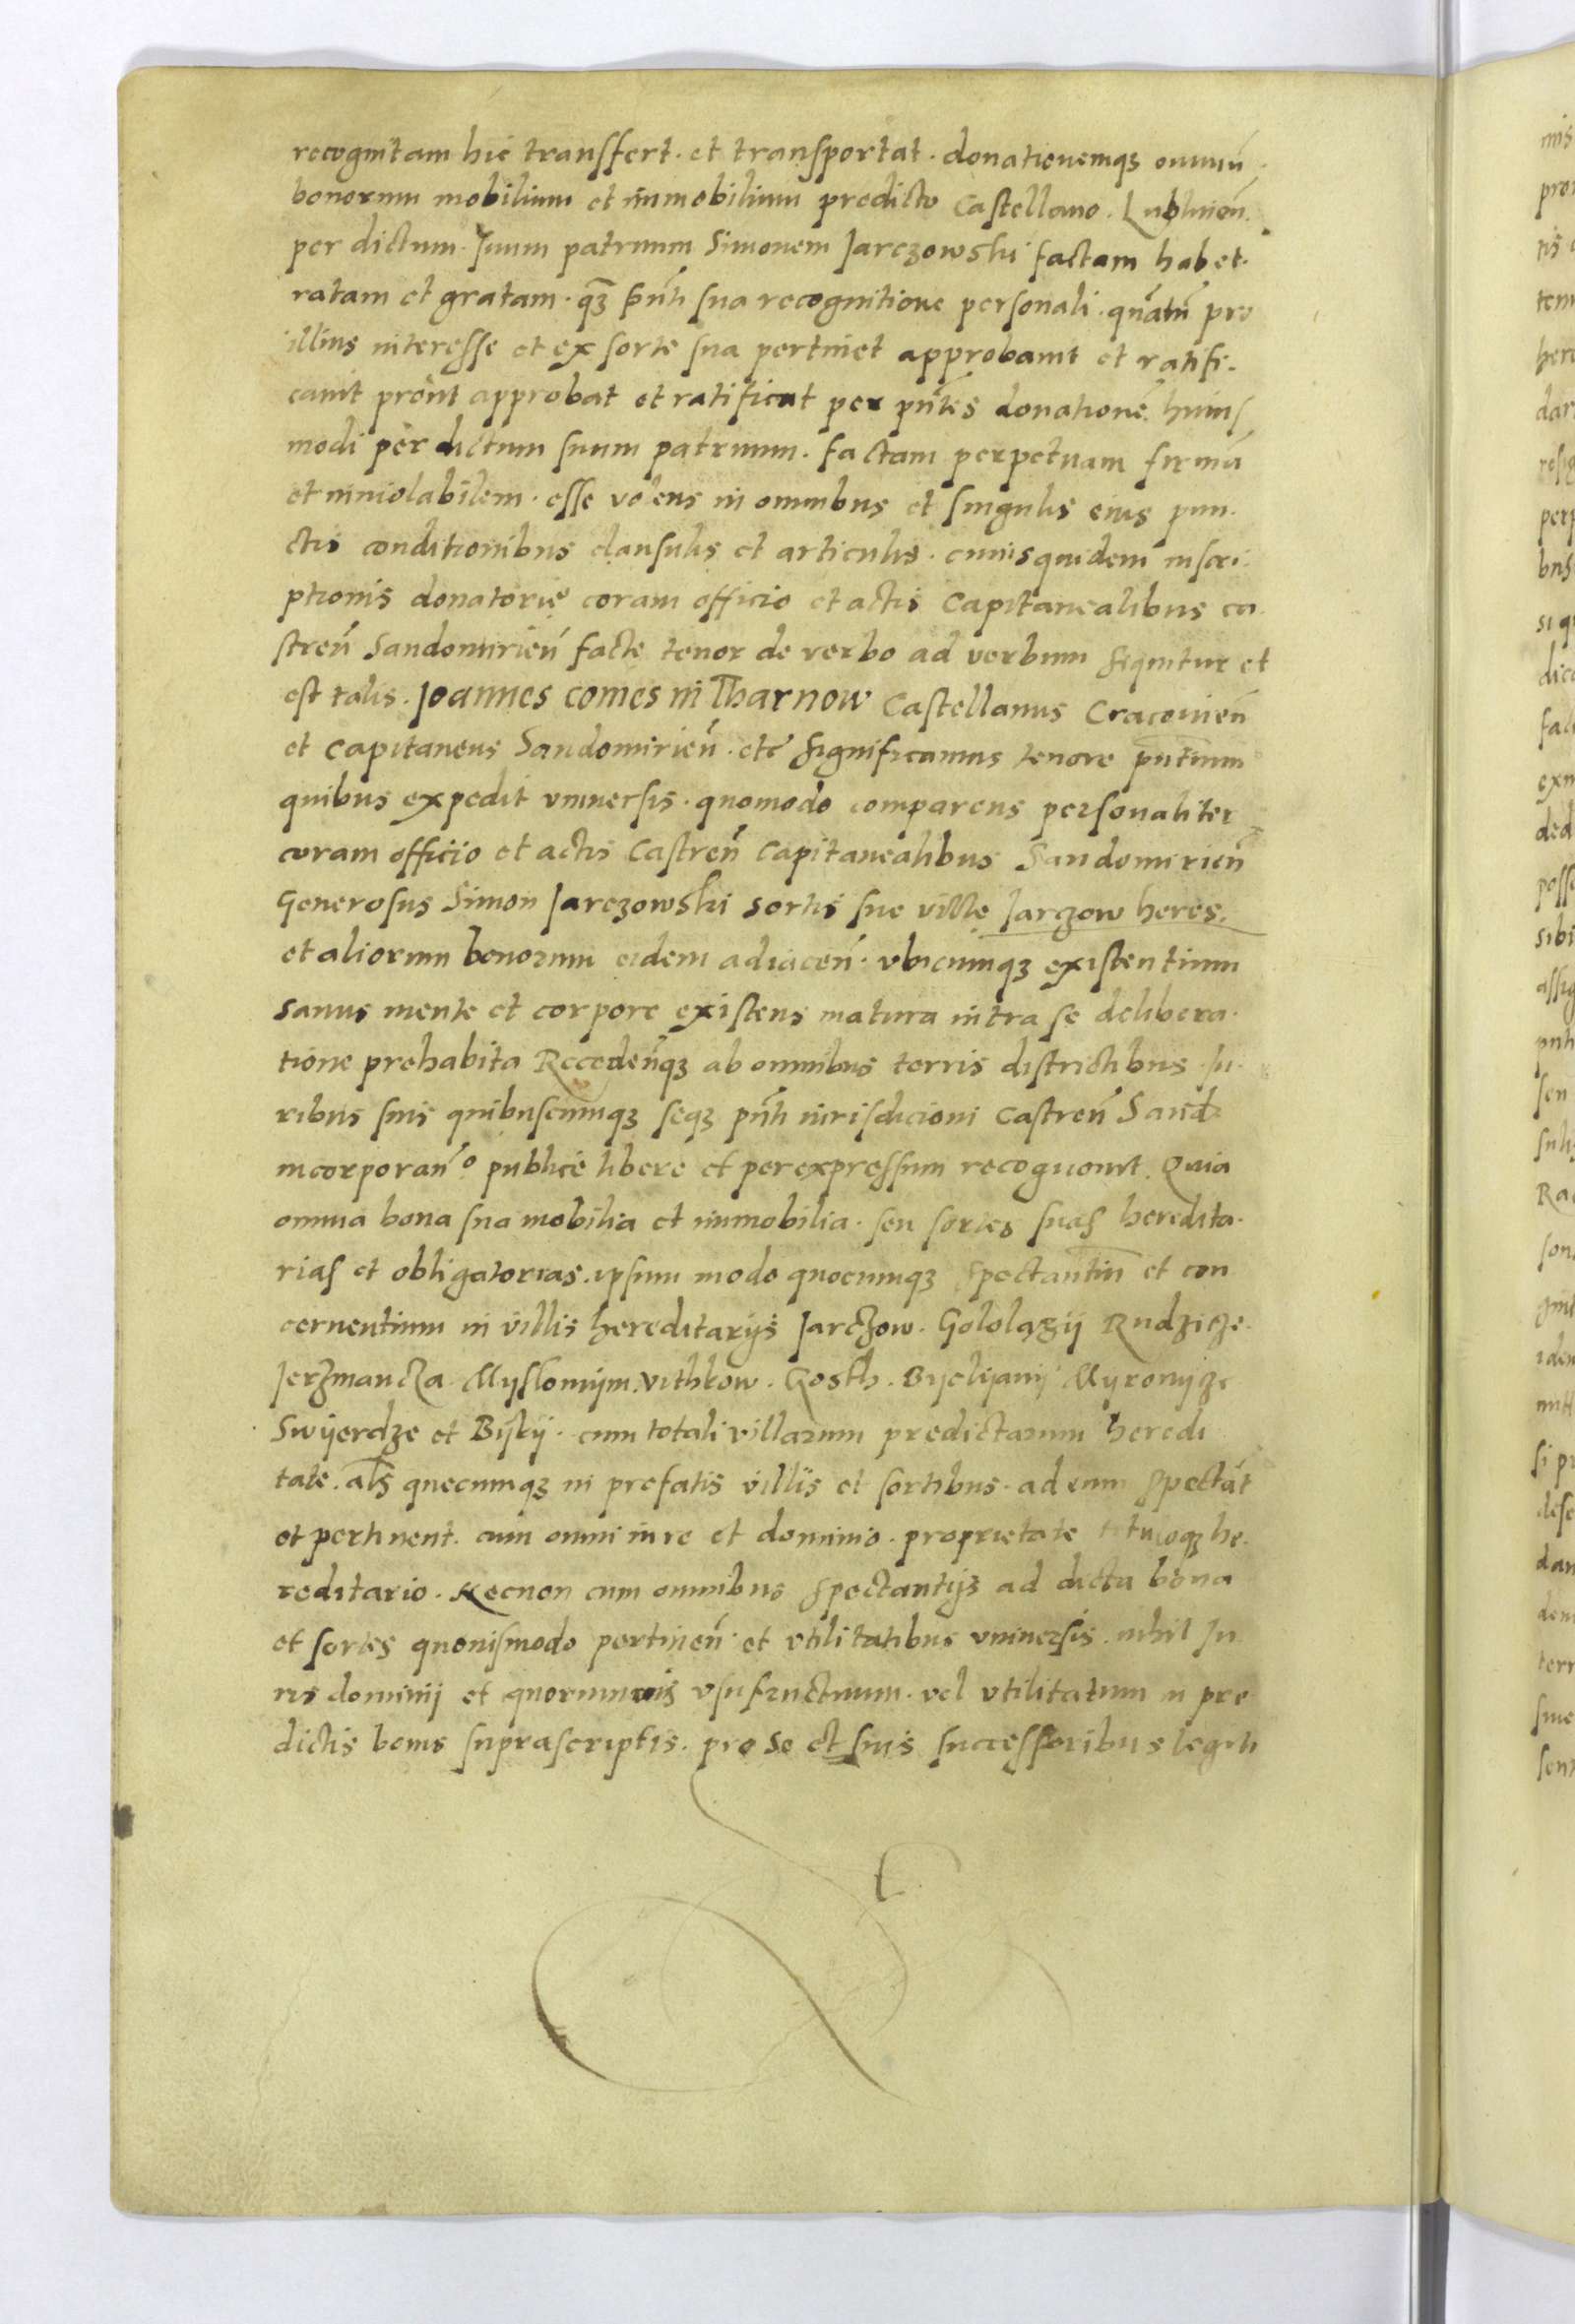 recognitam hic transfert. et transportat. donationemqȝ omniū
bonorum mobilium et immobilium predicto Castellano. Lublineñ.
per dictum. suum patruum Simonem Jarczowski factam habet.
ratam et gratam. qȝ pñti sua recognitione personali. quãtũ pro
illius interesse et ex sorte sua pertinet approbauit et ratifi-
cauit prout approbat et ratificat per pñtes donationẽ huius
modi per dictum suum patruum. factam perpetuam firmã
et inuiolabilem. esse volens in omnibus et singulis eius pun-
ctis conditionibus clausulis et articulis. cuiusquidem inscri-
ptionis donatorię coram officio et actis Capitanealibus ca-
streñ Sandomirieñ facte tenor de verbo ad verbum sequitur et
est talis. Joannes comes in Tharnow Castellanus Cracouieñ
et Capitaneus Sandomirieñ. etc̃ significamus tenore pñtium
quibus expedit vniuersis. quomodo comparens personaliter
coram officio et actis Castreñ Capitanealibus Sandomirieñ
Generosus Simon Jarczowski sortis sue ville Jarczow heres.
et aliorum bonorum eidem adiaceñ. vbicumqȝ existentium
sanus mente et corpore existens matura intra se delibera-
tione prehabita Recedeñqȝ ab omnibus terris districtibus. Ju-
ribus suis quibuscumqȝ seqȝ pñti iurisdicioni Castreñ Sand
incorporañ. publice libere et per expressum recognouit. Quia
omnia bona sua mobilia et immobilia. seu sortes suas heredita-
rias et obligatorias. ipsum modo quocumqȝ spectantiũ et con
cernentium in villis hereditarijs Jarczow. Gololązij Rudzicze.
Jerzmancza Myslomijm. vithkow. Gosth. Byelijanij Myronijcze
Swijerdze et Bijkij. cum totali villarum predictarum heredi
tate. al̃s quecumqȝ in prefatis villis et sortibus. ad eum spectãt
et pertinent. cum omni iure et dominio. proprietate tituloqȝ he-
reditario. Necnon cum omnibus spectantijs ad dicta bona
et sortes quouismodo pertineñ. et vtilitatibus vniuersis. nihil Ju
ris dominij et quorumuis vsufructuum. vel vtilitatum in pre
dictis bonis suprascriptis. pro se et suis successoribus legiti